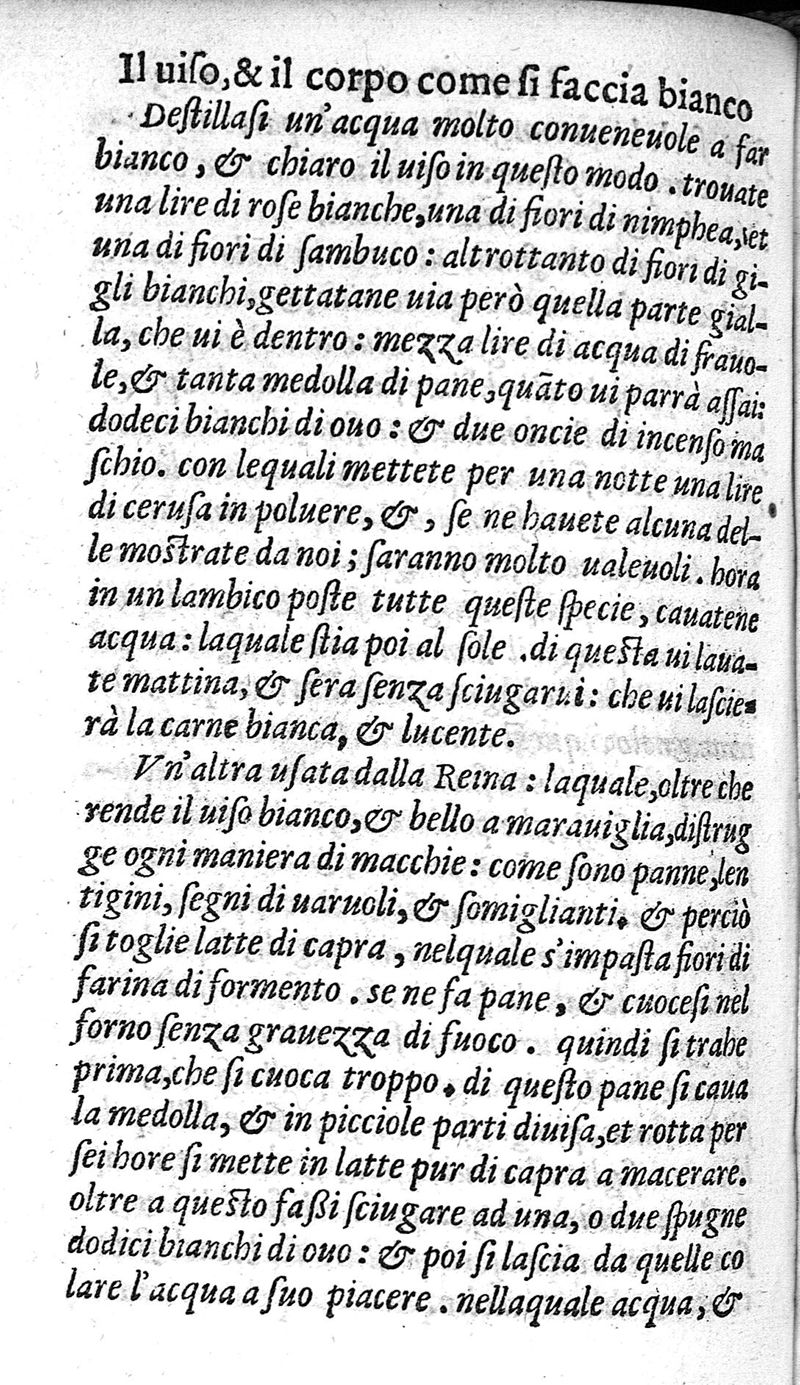 Il uiſo,& il corpo come ſi faccia bianco
Deſtillaſi un'acqua molto conueneuole a far
bianco, & chiaro il uiſo in queſto modo . trouate
una lire di roſe bianche,una di fiori di nimphea, et
una di fiori di ſambuco : altrottanto di fiori di gi-
gli bianchi,gettatane uia però quella parte gial-
la, che ui è dentro : mezza lire di acqua di frauo-
le,& tanta medolla di pane,quāto ui parrà aſſai:
dodeci bianchi di ouo : & due oncie di incenſo ma
ſchio. con lequali mettete per una notte una lire
di ceruſa in poluere, &, ſe ne hauete alcuna del-
le moſtrate da noi ; ſaranno molto ualeuoli . hora
in un lambico poſte tutte queſte ſpecie, cauatene
acqua : laquale ſtia poi al ſole . di queſta ui laua-
te mattina, & ſera ſenza ſciugarui : che ui laſcie-
rà la carne bianca, & lucente.
Vn'altra uſata dalla Reina : laquale,oltre che
rende il uiſo bianco,& bello a marauiglia,diſtrug
ge ogni maniera di macchie : come ſono panne,len
tigini, ſegni di uaruoli, & ſomiglianti. & perciò
ſi toglie latte di capra , nelquale s'impaſta fiori di
farina di formento . se ne fa pane , & cuoceſi nel
forno ſenza grauezza di fuoco . quindi ſi trahe
prima,che ſi cuoca troppo. di queſto pane ſi caua
la medolla, & in picciole parti diuiſa,et rotta per
ſei hore ſi mette in latte pur di capra a macerare.
oltre a queſto faßi ſciugare ad una, o due ſpugne
dodici bianchi di ouo : & poi ſi laſcia da quelle co
lare l'acqua a ſuo piacere . nellaquale acqua, &